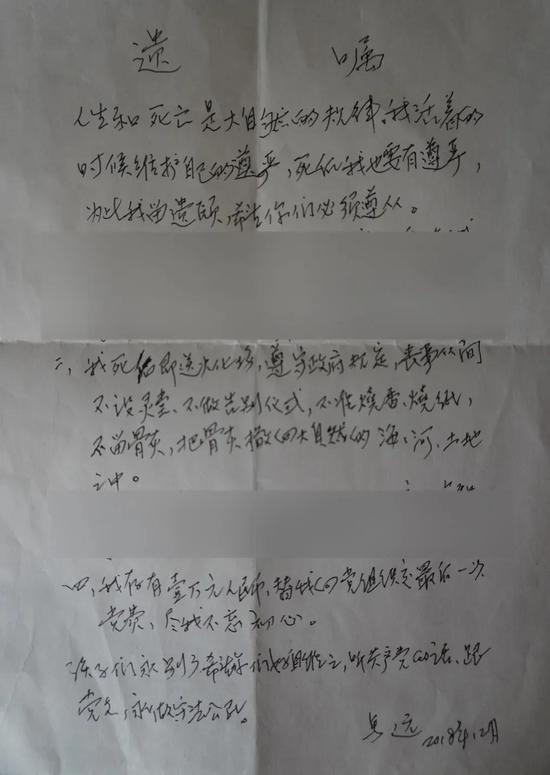 遗 嘱
人生和死亡是大自然的规律。我活着的
时候维护自己的尊严,死后我也要有尊严,
为此我留遗嘱,希望你们必须遵从。
二、我死后即送火化场,遵守政府规定,丧事从简
不设灵堂、不做告别仪式,不准烧香、烧纸,
不留骨灰,把骨灰撒向大自然的海、河、土地
之中。
四、我存有壹万元人民币,替我向党组织交最后一次
党费,尽我不忘初心。
孩子们永别了希望你们好自为之,听共产党的话、跟
党走,永做守法公民。
2018年12月